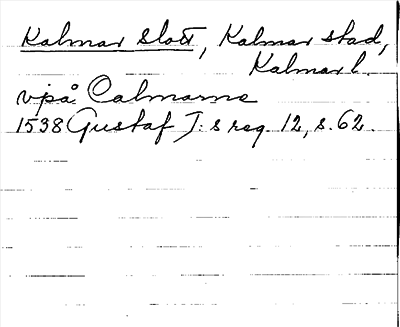 Kalmar slott, Kalmar stad,
Kalmar l.
vpå Calmarne
1538 Gustaf I: s reg. 12, s. 62.